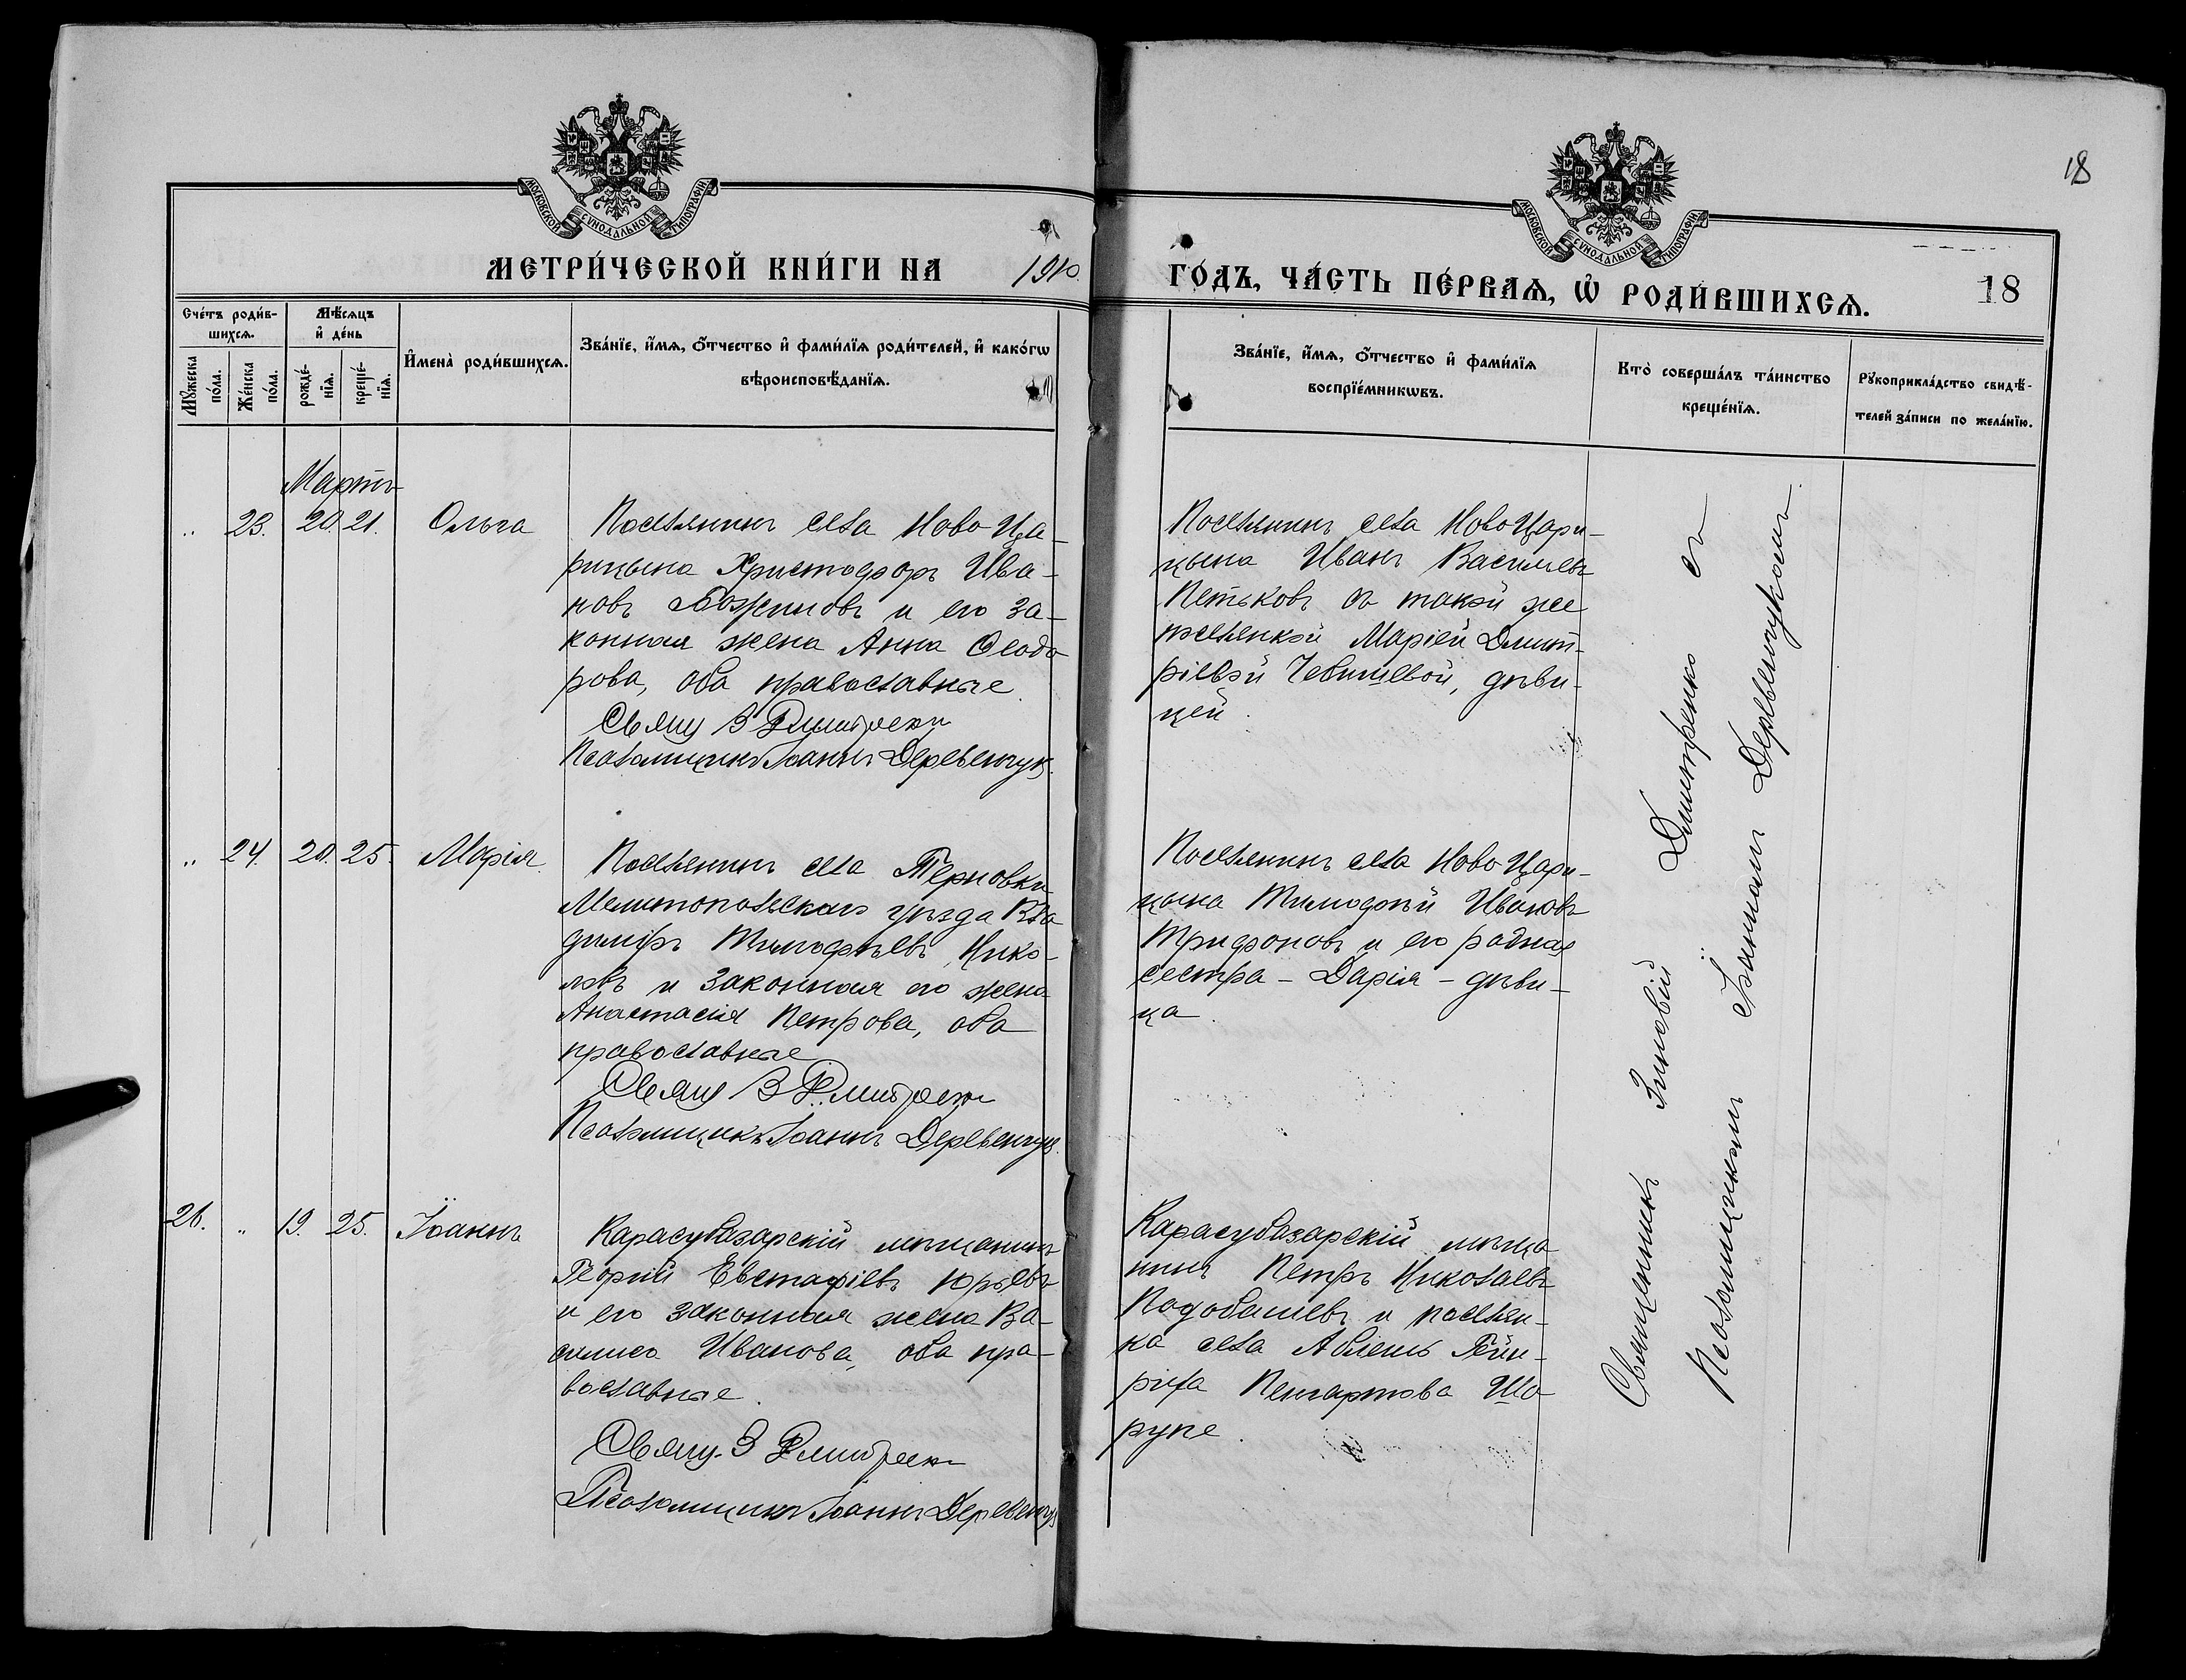 18
МОСКОВСКОЙ СѴНОДАЛЬНОЙ ТИПОГРАФІИ
МОСКОВСКОЙ СѴНОДАЛЬНОЙ ТИПОГРАФІИ
МЕТРИ́ЧЕСКОЙ КНИ́ГИ НА 1910.
ГО́ДЪ, ЧА́СТЬ ПЕ́РВАѦ, Ѡ҆ РОДИ́ВШИХСѦ.
18
Сче́тъ роди́в-
шихсѧ.
Мꙋ́жеска
по́ла.
Же́нска
по́ла.
Мѣ́сѧцъ
и҆ де́нь
рожде́-
нїѧ.
креще́-
нїѧ.
И҆мена̀ роди́вшихсѧ.
Зва́нїе, и҆́мѧ, ѻ҆́тчество и҆ фами́лїѧ роди́телей, и҆ како́гѡ
вѣроисповѣ́данїѧ.
Зва́нїе, и҆́мѧ, ѻ҆́тчество и҆ фами́лїѧ
воспрїе́мникѡвъ.
Кто̀ соверша́лъ та́инство
креще́нїѧ.
Рꙋкоприкла́дство свидѣ́-
телей за́писи по жела́нїю.
Мартъ
„ 23. 20. 21. Ольга
Поселянинъ села Ново Ца-
рицына Христофоръ Ива-
новъ Божиновъ и его за-
конная жена Анна Ѳеодо
рова, оба православные.
Свящ З Дмитренко
Псаломщикъ Іоаннъ Деревенчук.
Поселянинъ села НовоЦари-
цына Иванъ Васильевъ
Петьковъ съ такой же
поселянкой Маріей Дмит-
ріевой Чебишевой, дѣви-
цей.
„ 24. 20. 25. Марія.
Поселянинъ села Терновки
Мелитопольскаго уѣзда Вла
диміръ Тимофѣевъ Нико-
ловъ и законная его жена
Анастасія Петрова, оба
православные
Свящ З Дмитренко
Псаломщикъ Іоаннъ Деревенчук.
Поселянинъ села Ново Цари-
цына Тимофѣй Ивановъ
Трифоновъ и его родная
сестра - Дарія - дѣви-
ца.
26. „ 19. 25. Іоаннъ
Карасубазарскій мѣщанинъ
Георгій Евстафіевъ Юрьевъ
и его законная жена Ва-
силиса Иванова, оба пра-
вославные.
Свящ. З Дмитренко
Псаломщикъ Іоаннъ Деревенчук
Карасубазарскій мѣща
нинъ Петръ Николаевъ
Подобашевъ и поселян-
ка села Аблешъ
Священникъ Зиновій Дмитренко съ
Псаломщикомъ Іоанномъ Деревенчукомъ.